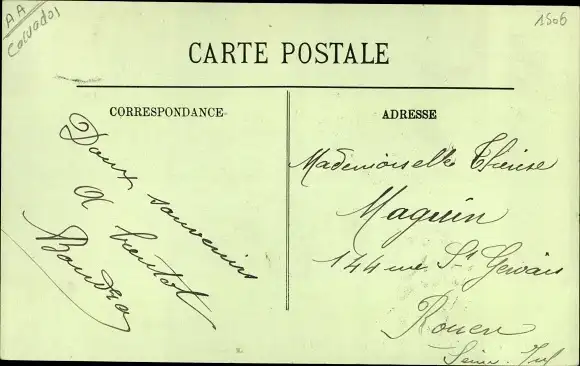 AA
Calvados
1506
CARTE POSTALE
CORRESPONDANCE
Doux souvenirs
a bientot
ADRESSE
Mademoiselle Thérèse
Maguin
144 rue St Gervais
Rouen
Seine Inf